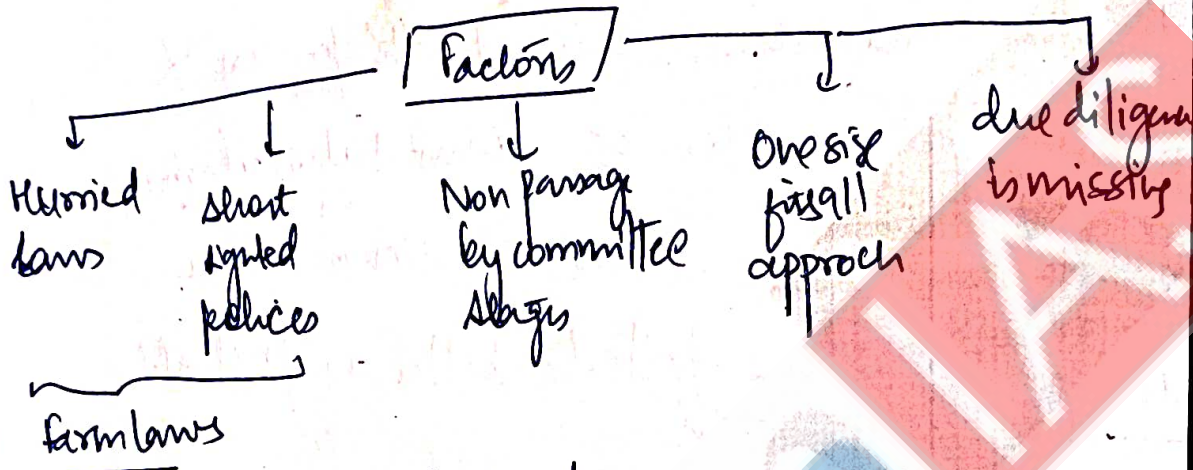 Factors
Hurried
laws
short
sighted
polices
Non passage
by committee
stages
One size
fits all
approch
due diligence
is missing
farm laws
IAS